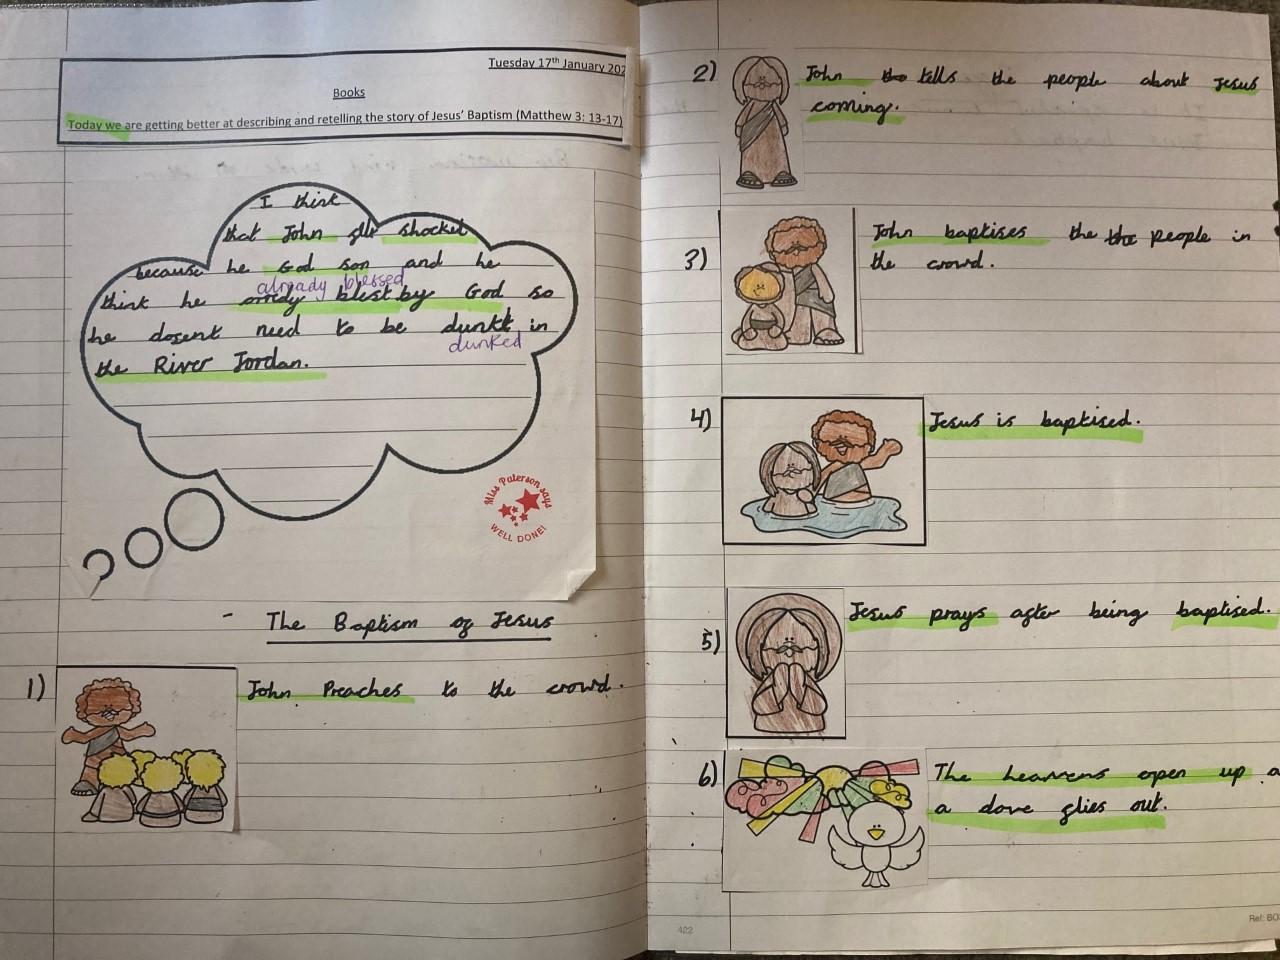 Tuesday 17th January 202
Books
Today we are getting better at describing and retelling the story of Jesus' Baptism (Matthew 3: 13-17)
I think
that John shocket
because he God son and he
already blessed
think he orredy blest by God so
he dosent need to be dunkt in
dunked
the River Jordan.
Miss Paterson says
WELL DONE!
- The Baptism of Jesus
1) John Preaches to the crowd.
2) John the tells the people about Jesus
coming.
3) John baptises the the people in
the crowd.
4) Jesus is baptised.
5) Jesus prays after being baptised.
6) The heavens open up a
a dove flies out.
422
Ref: BO